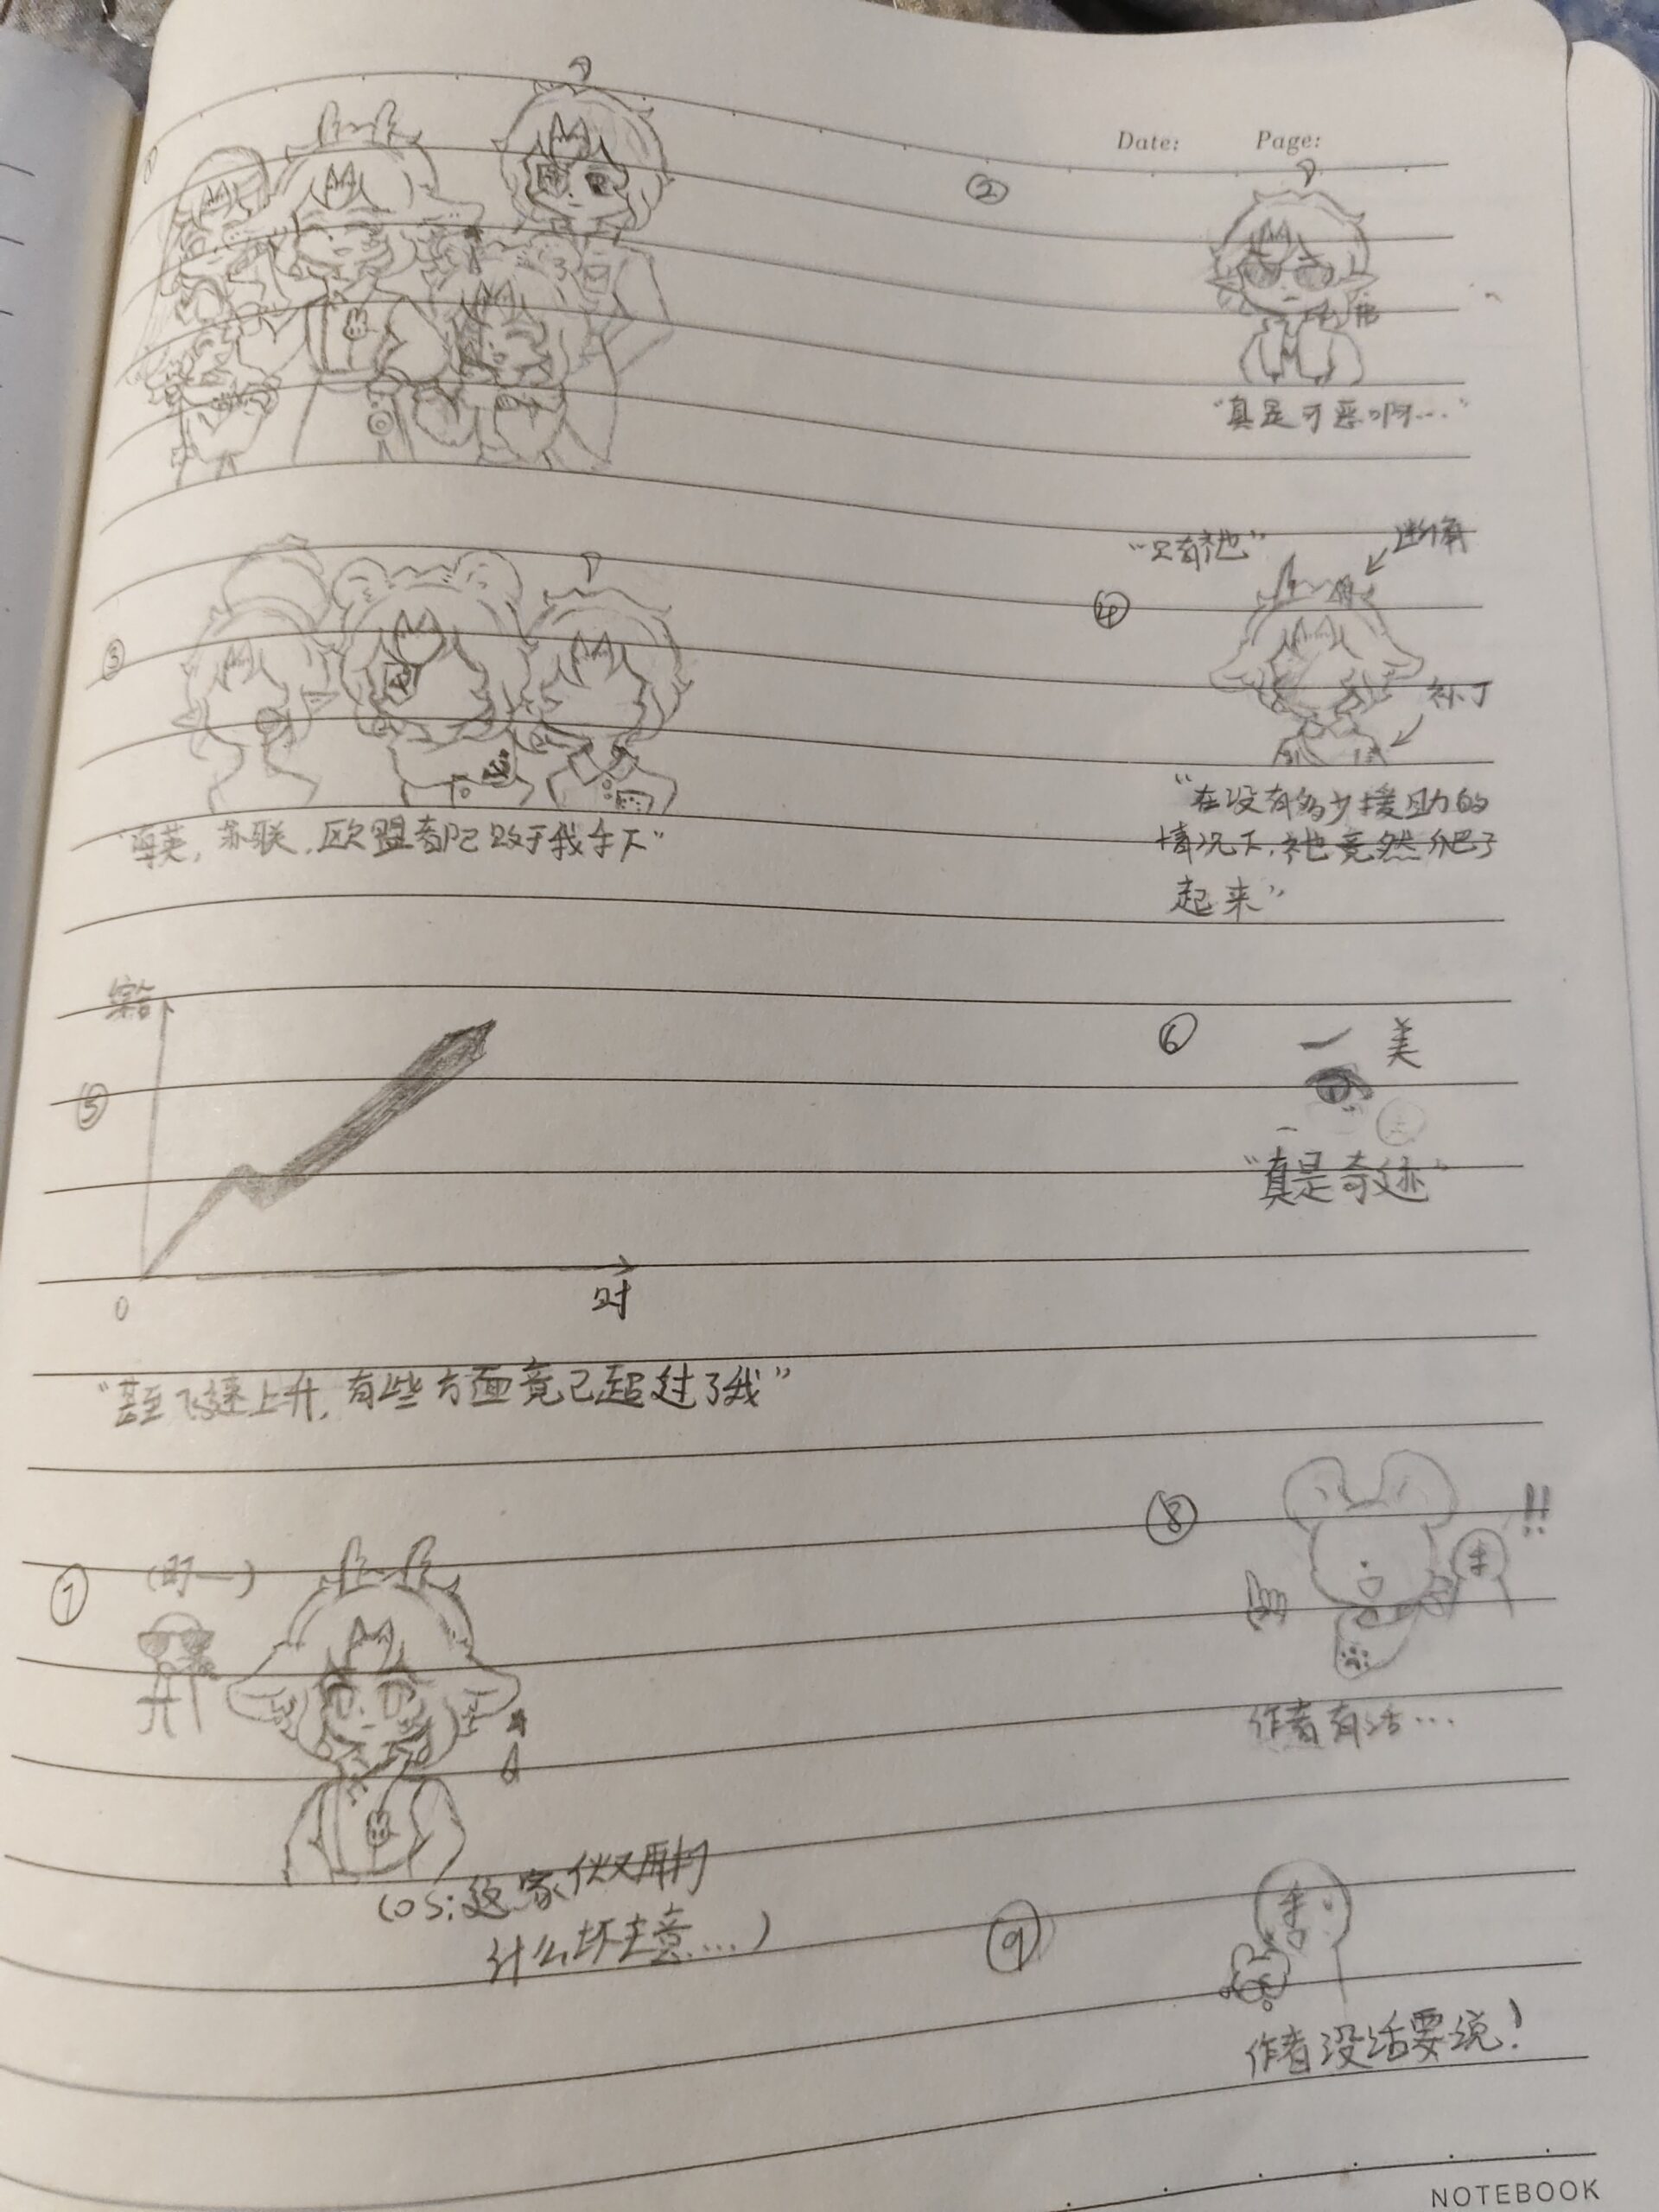 Date: Page:
①
②
"真是可恶啊…"
③
"海英，苏联，欧盟都已败于我手下"
"只有祂"
断角
④
补丁
"在没有多少援助的
情况下，祂竟然爬了
起来"
综合
⑤
0
时
"甚至飞速上升，有些方面竟已超过了我"
⑥
美
"真是奇迹"
⑦
(盯一)
(OS:这家伙又
什么坏主意…)
⑧
手
!!
作者有话…
⑨
手
作者没话要说!
NOTEBOOK